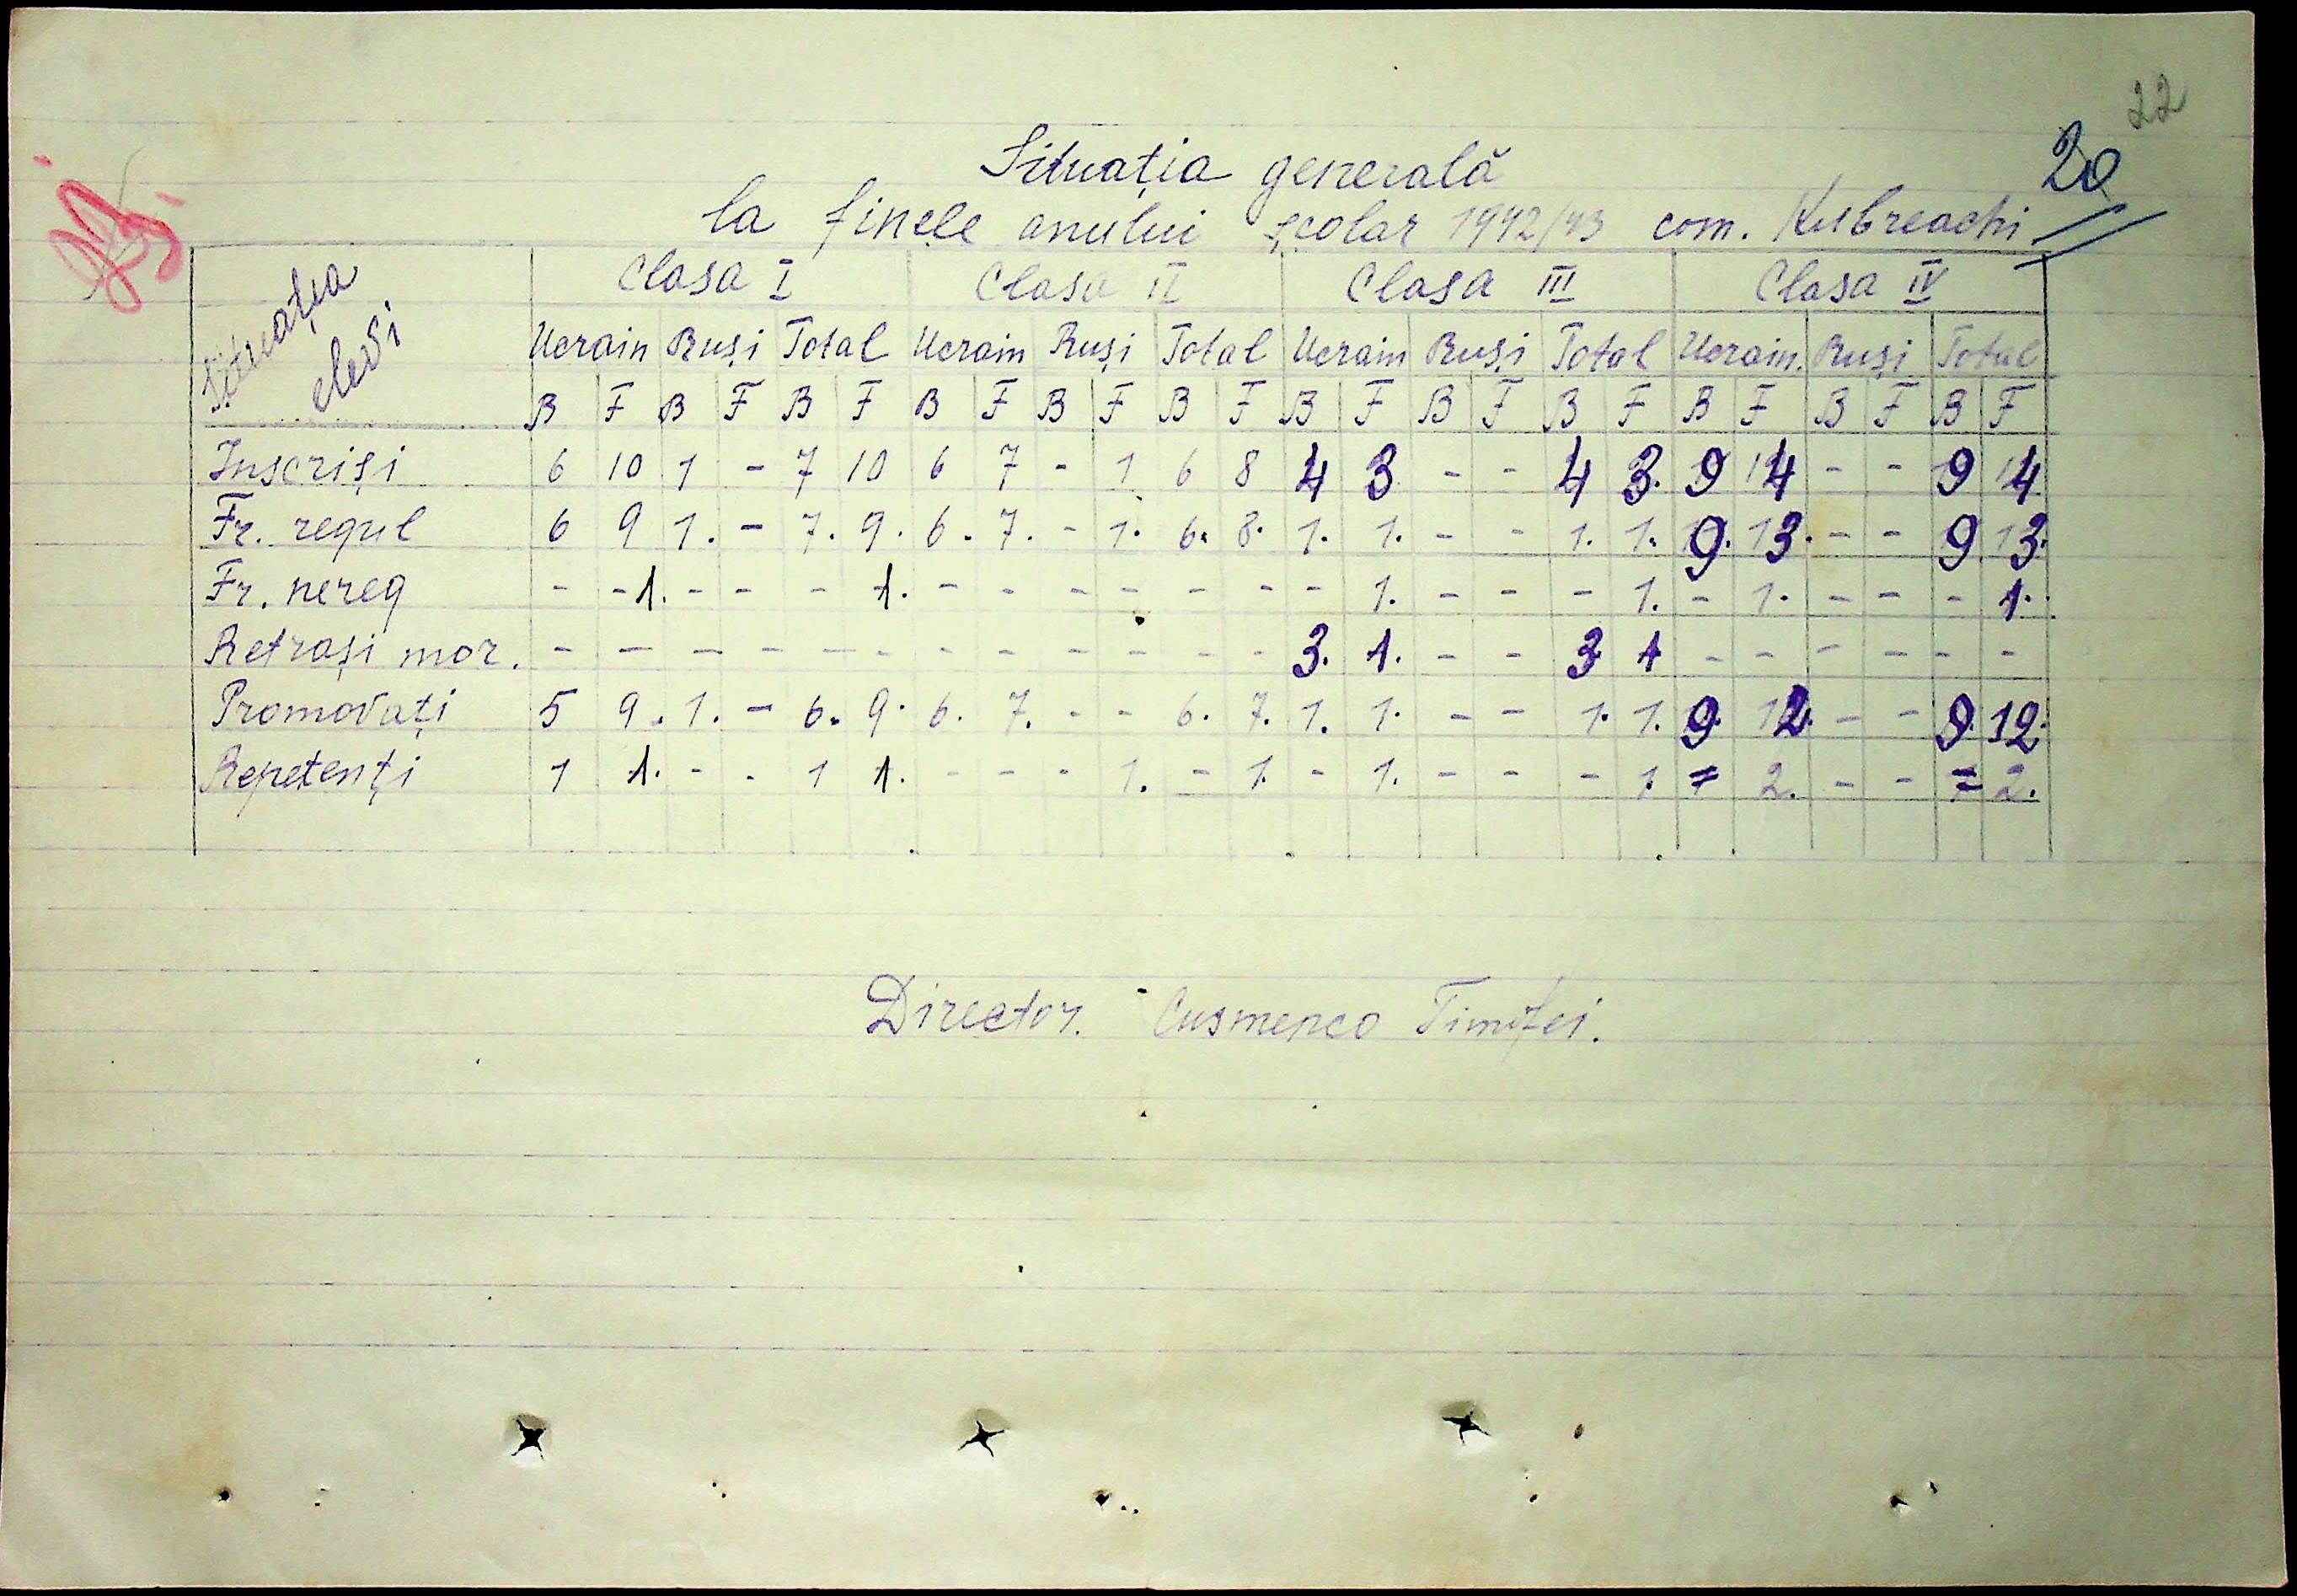 22
20
Situația generală
la finele anului școlar 1942/43 com. Kulbreachi
Situația elevi
Clasa I Clasa II Clasa III Clasa IV
Ucrain Ruși Total Ucrain Ruși Total Ucrain Ruși Total Ucrain. Ruși Total
B F B F B F B F B F B F B F B F B F B F B F B F
Inscriși 6 10 1 - 7 10 6 7 - 1 6 8 4 3 - - 4 3. 9 14 - - 9 14
Fr. regul 6 9 1. - 7. 9. 6. 7. - 1. 6. 8. 1. 1. - - 1. 1. 9. 13. - - 9 13.
Fr. nereg - -1. - - - 1. - - - - - - - 1. - - - 1. - 1. - - - 1.
Retrași mor. - - - - - - - - - - - - 3. 1. - - 3 1 - - - - - -
Promovați 5 9. 1. - 6. 9. 6. 7. - - 6. 7. 1. 1. - - 1. 1. 9. 12. - - 9. 12.
Repetenți 1 1. - - 1 1. - - - 1. - 1. - 1. - - - 1 = 2. - - = 2.
Director. Cusmenco Timofei.